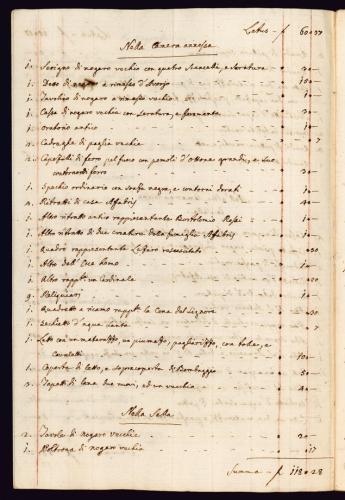 Latus - f 60.37
Nella Camera annessa
1. Scrigno di nogaro vechio con quatro Stancelli, e Serature 30 -
1. Deto di nogaro a rimesso d'Avorio 150 -
1. Tavolino di nogaro a rimesso vechio 10 -
1. Cassa di nogaro vechia con Serature, e fermante 30 -
1. Oratorio antico 10 -
Cadreghe di paglia vechie 7
2. Capofochi di ferro pel fuoco con pomoli d'Ottone grandi, e suo
contorno di ferro 30 -
1. Spechio ordinario con soasa negra, e contorni dorati 10 -
Ritratti di casa Alfabris 40 -
1. Altro ritratto antico rappresentante Bortolomio 10 -
1. Altro ritratto di due creature della famiglia Alfabris 10 -
1. Quadro rappresentante Lazaro resuscitato 30
1. Alto dell'Ecce homo 10 -
1. Altro rappte. un Cardinale 20
9. Reliquiari 10 -
1. Quadretto a ricamo rappte. la Cena del Signore 30
1. Sechietto d'aqua Santa 7
1. Letto con un materasso, un piumasso, pagliarizzo, con tolle, e
Cavaletti 100 -
1. Coperta di letto, e sopracoperta di Bombaggio 50 -
3. Tapetti di lana due novi, ed un vecchio 40 -
Nella Salla
2. Tavole di nogaro vecchie 20 -
1. Poltrona di nogaro vechia 17
Summa - f 118.28